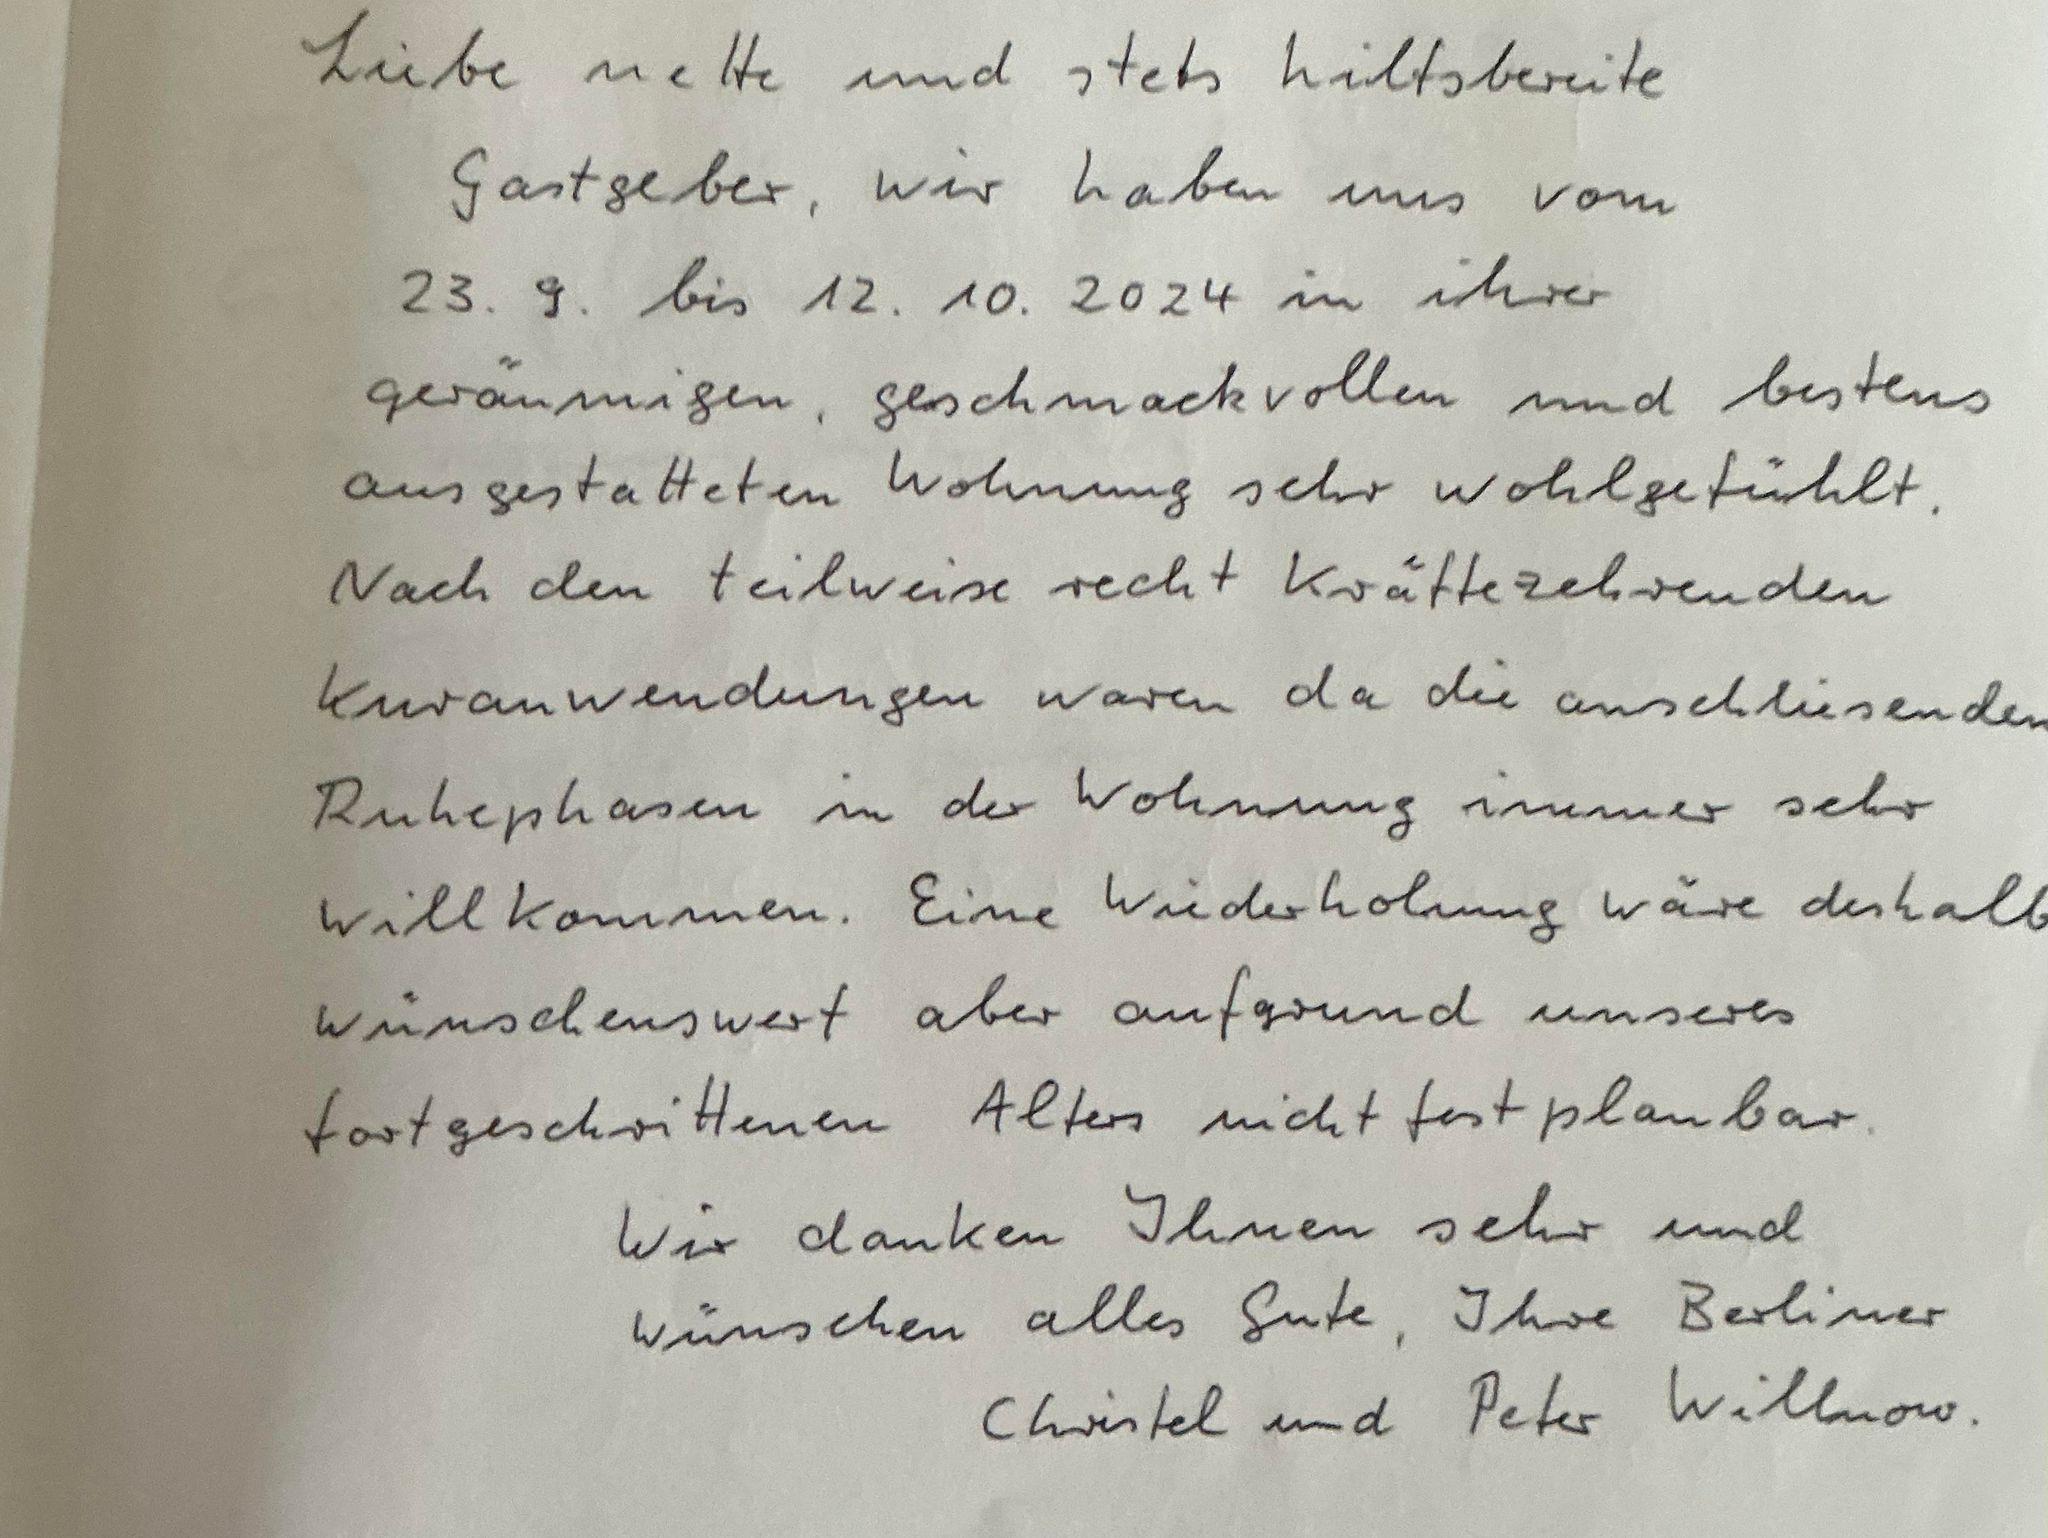 Liebe nette und stets hilfsbereite
Gastgeber, wir haben uns vom
23. 9. bis 12. 10. 2024 in ihrer
geräumigen, geschmackvollen und bestens
ausgestatteten Wohnung sehr wohlgefühlt.
Nach den teilweise recht Kräftezehrenden
Kuranwendungen waren da die anschliesenden
Ruhephasen in der Wohnung immer sehr
willkommen. Eine Wiederholung wäre deshalb
wünschenswert aber aufgrund unseres
fortgeschrittenen Alters nicht fest planbar.
Wir danken Ihnen sehr und
wünschen alles Gute, Ihre Berliner
Christel und Peter Willnow.